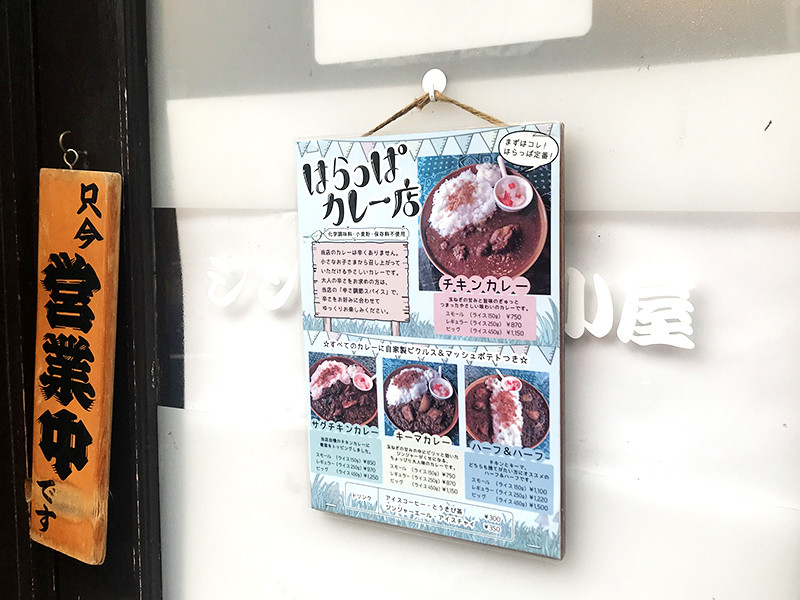 只今
営業中
です
はらっぱ
カレー店
まずはコレ!
はらっぱ定番!
化学調味料・小麦粉・保存料不使用
当店のカレーは辛くありません。
小さなお子さまから召し上がって
いただけるやさしいカレーです。
大人の辛さをお求めの方は、
当店の「辛さ調節スパイス」で、
辛さをお好みに合わせて
ゆっくりお楽しみください。
チキンカレー
玉ねぎの甘みと旨味のぎゅっと
つまったやさしい味わいのカレーです。
スモール (ライス150g) ¥750
レギュラー (ライス250g) ¥870
ビッグ (ライス450g) ¥1,150
☆すべてのカレーに自家製ピクルス&マッシュポテトつき☆
サグチキンカレー
当店自慢のチキンカレーに
青菜をトッピングしました。
スモール (ライス150g) ¥850
レギュラー (ライス250g) ¥970
ビッグ (ライス450g) ¥1,250
キーマカレー
玉ねぎの甘みの中にピリッと効いた
ジンジャーがくせになる、
ちょっぴり大人味のカレーです。
スモール (ライス150g) ¥750
レギュラー (ライス250g) ¥870
ビッグ (ライス450g) ¥1,150
ハーフ&ハーフ
チキンとキーマ、
どちらも捨てがたい方にオススメの
ハーフ&ハーフです。
スモール (ライス150g) ¥1,100
レギュラー (ライス250g) ¥1,220
ビッグ (ライス450g) ¥1,500
ドリンク
アイスコーヒー・とうきび茶 ¥300
ジンジャーエール・アイスチャイ ¥350
シン
小屋